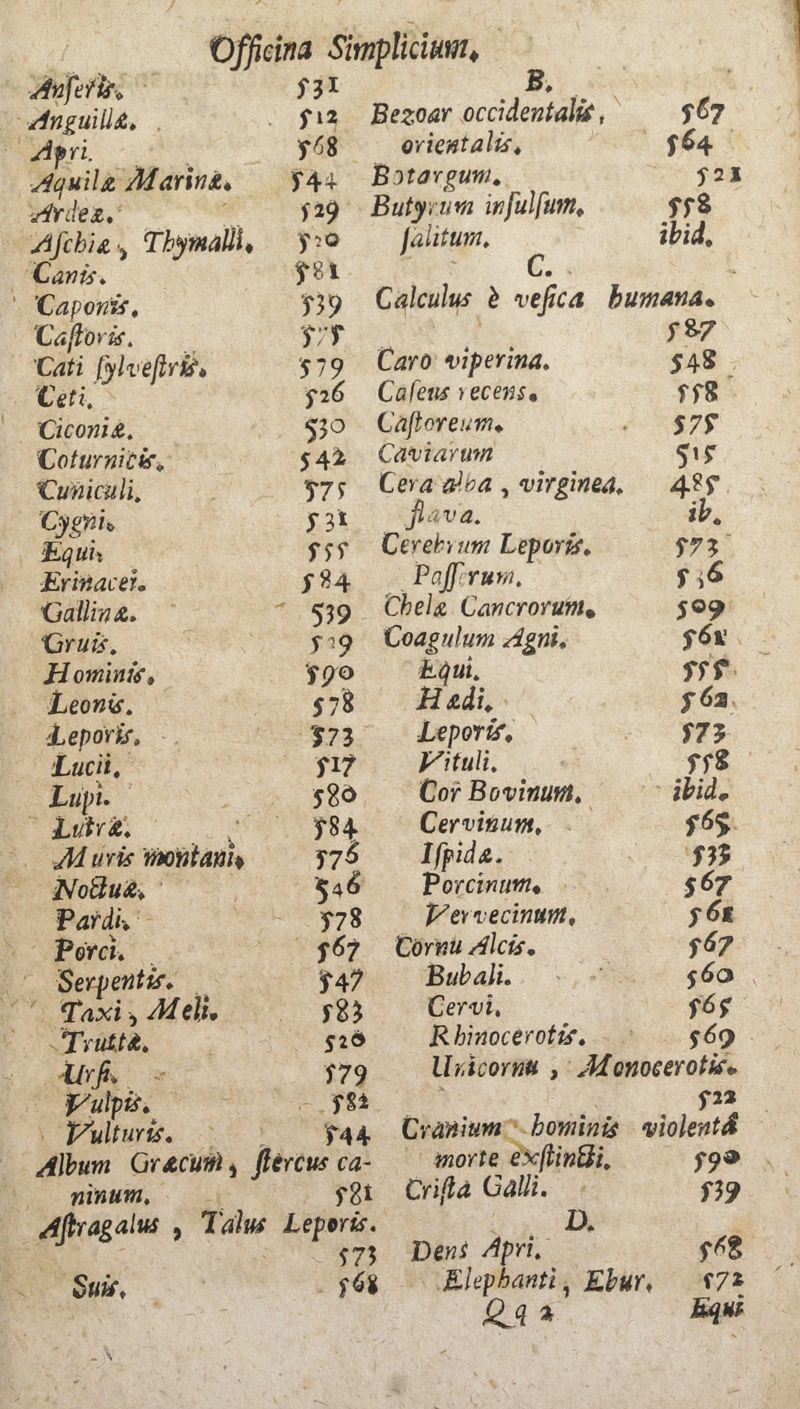 Officina Simplicium.
Anſeris. 531
Anguillæ. 512
Apri. 568
Aquilæ Marinæ. 544
Ardeæ. 529
Aſchiæ, Thymalli. 520
Canis. 581
Caponis. 539
Caſtoris. 575
Cati ſylveſtris. 579
Ceti. 526
Ciconiæ. 530
Coturnicis. 542
Cuniculi. 575
Cygni. 531
Equi. 555
Erinacei. 584
Gallinæ. 539
Gruis. 529
Hominis. 590
Leonis. 578
Leporis. 573
Lucii. 517
Lupi. 580
Lutræ. 584
Muris montani. 576
Noctuæ. 546
Pardi. 578
Porci. 567
Serpentis. 547
Taxi, Meli. 583
Truttæ. 520
Urſi. 579
Vulpis. 582
Vulturis. 544
Album Græcum, ſtercus ca-
ninum. 581
Aſtragalus, Talus Leporis.
573
Suis. 568
B.
Bezoar occidentalis. 567
orientalis. 564
Botargum. 521
Butyrum inſulſum. 558
ſalitum. ibid.
C.
Calculus è veſica humana.
587
Caro viperina. 548
Caſeus recens. 558
Caſtoreum. 575
Caviarum 515
Cera alba, virginea. 485
flava. ib.
Cerebrum Leporis. 573
Paſſerum. 536
Chelæ Cancrorum. 509
Coagulum Agni. 561
Equi. 555
Hædi. 562
Leporis. 573
Vituli. 558
Cor Bovinum. ibid.
Cervinum. 565
Iſpidæ. 533
Porcinum. 567
Vervecinum. 561
Cornu Alcis. 567
Bubali. 560
Cervi. 565
Rhinocerotis. 569
Unicornu, Monocerotis.
522
Cranium hominis violentâ
morte exſtincti. 590
Criſta Galli. 539
D.
Dens Apri. 568
Elephanti, Ebur. 572
Qq 2 Equi